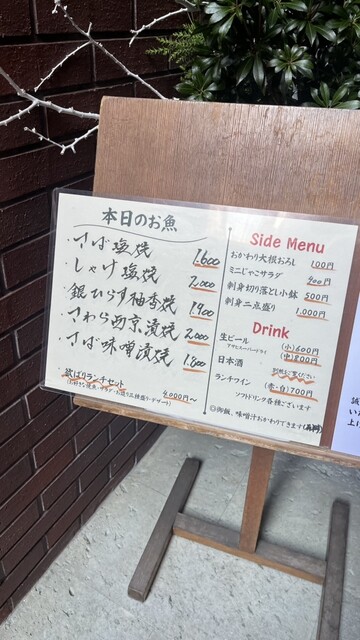 本日のお魚
・さば塩焼 1.600
・しゃけ塩焼 2,000
・銀ひらす柚香焼 1.900
・さわら西京漬焼 2.000
・さば味噌漬焼 1.800
欲ばりランチセット
4000円〜
Side Menu
おかわり大根おろし 100円
ミニじゃこサラダ 400円
刺身切り落とし小鉢 500円
刺身二点盛り 1,000円
Drink
生ビール (小)600円
アサヒスーパードライ (中)800円
日本酒 別紙ご覧ください
ランチワイン (赤・白)700円
ソフトドリンク各種ございます
◎御飯、味噌汁おかわりできます(有料)